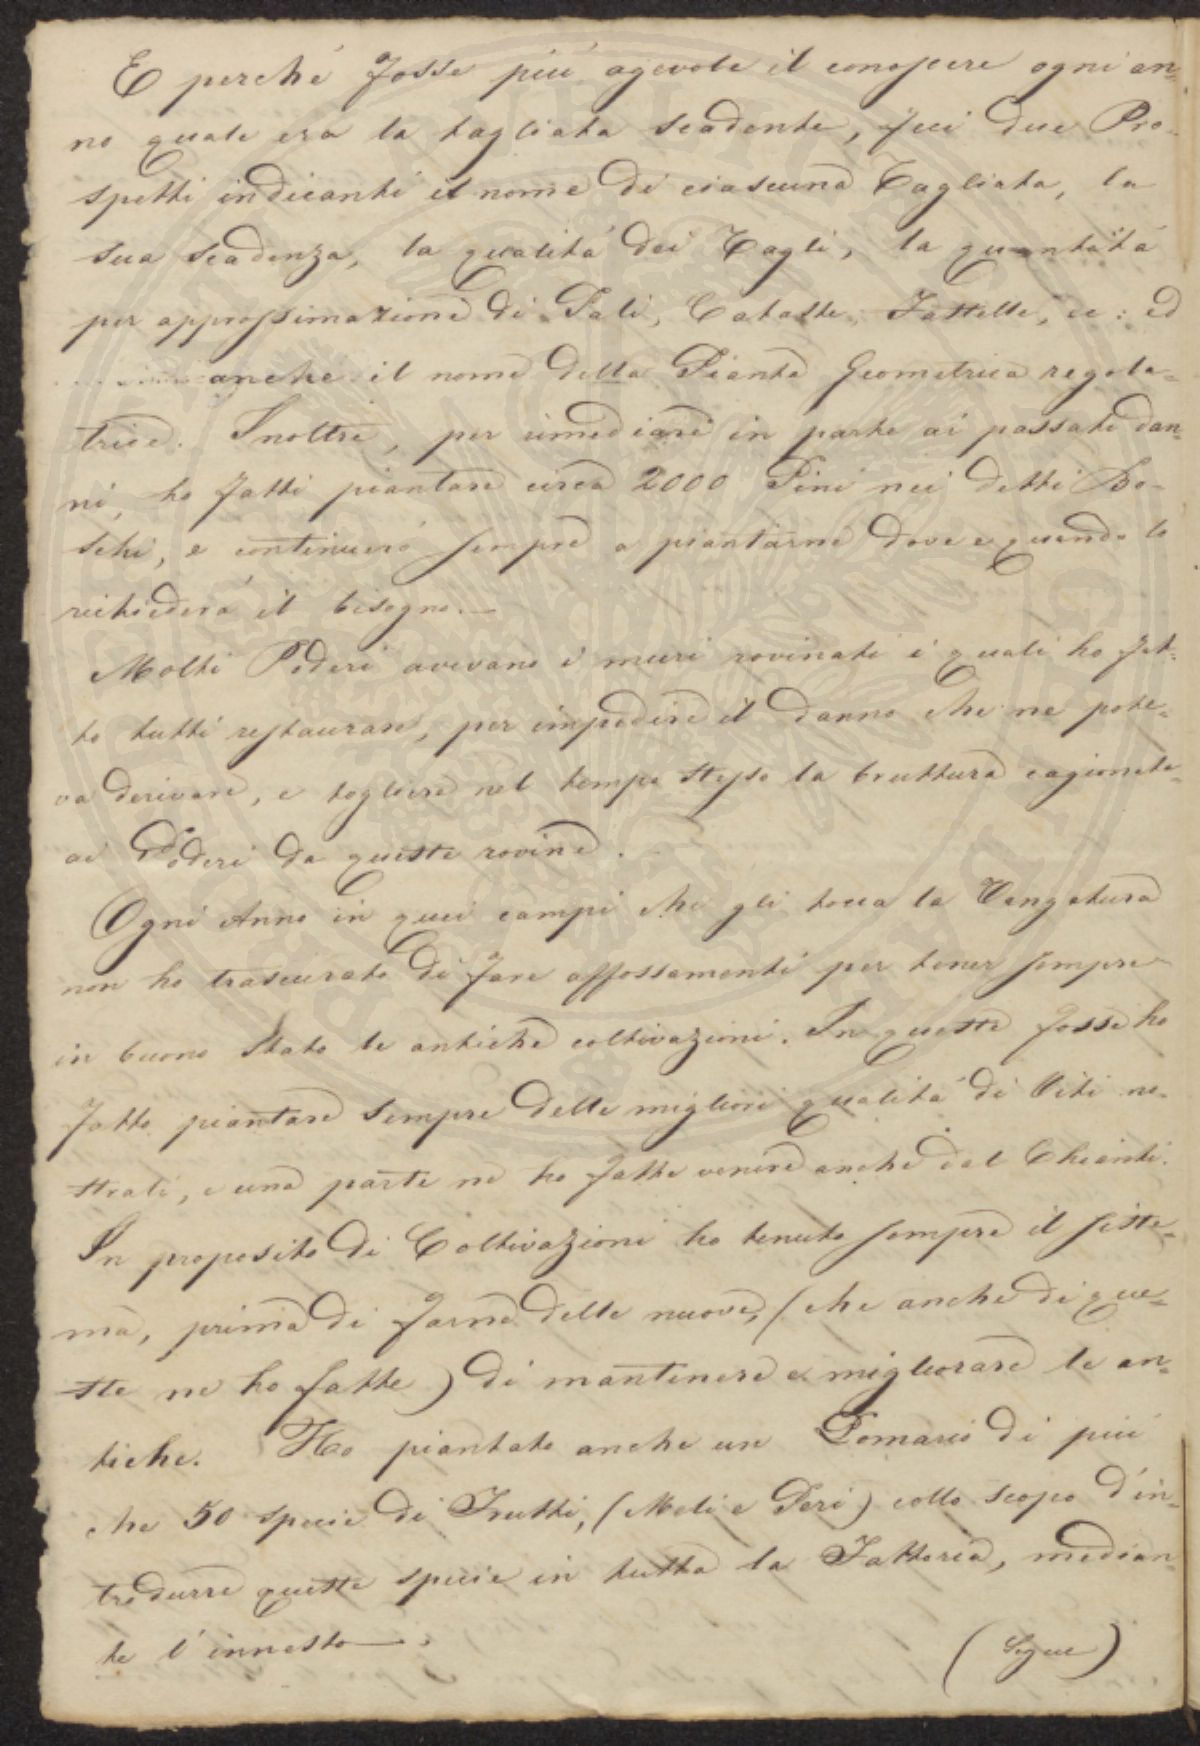 E perché fosse più agevole il conoscere ogni an-
no quale era la tagliata scadente, feci due Pro-
spetti indicanti il nome di ciascuna Tagliata, la
sua scadenza, la qualità dei Tagli, la quantità
per approssimazione di Pali, Cataste, Fastella, ec: ed
anche il nome della Pianta Geometrica regola-
trice. Inoltre, per rimediare in parte ai passati dan-
ni, ho fatti piantare circa 2000 Pini nei detti Bo-
schi, e continuerò sempre a piantarne dove e quando lo
richiederà il bisogno.—
Molti Poderi avevano i muri rovinati i quali ho fat-
to tutti restaurare, per impedire il danno che ne pote-
va derivare, e togliere nel tempo stesso la bruttura cagionata
ai Poderi da queste rovine.
Ogni Anno in quei campi che gli tocca la Vangatura
non ho trascurato di fare affossamenti per tener sempre
in buono Stato le antiche coltivazioni. In queste fosse ho
fatto piantare sempre delle migliori qualità di Viti no-
strali, e una parte ne ho fatte venire anche dal Chianti.
In proposito di Coltivazioni ho tenuto sempre il siste-
ma, prima di farne delle nuove, (che anche di que-
ste ne ho fatte) di mantenere e migliorare le an-
tiche. Ho piantato anche un Pomario di più
che 50 specie di Frutti, (Meli e Peri) collo scopo d'in-
trodurre queste specie in tutta la Fattoria, median-
te l'innesto—.
(Segue)